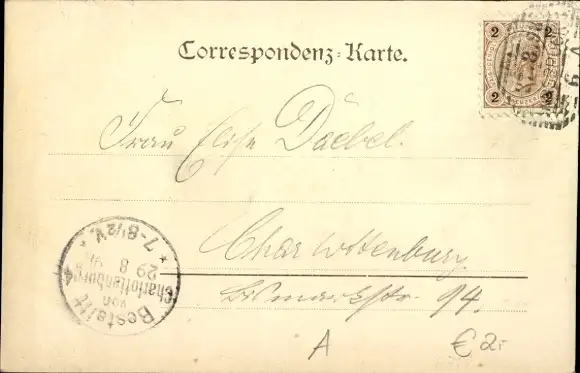 Correspondenz-Karte.
2 2
2 2
Frau Elise Daebel.
Charlottenburg
Bismarckstr. 94.
Bestellt
von
Charlottenburg 4
29 8
* 7-8 1/2 V. *
A
€ 2,-